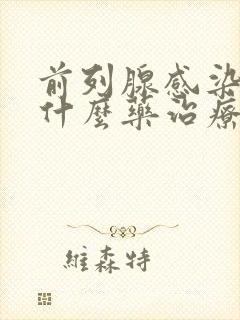 前列腺感染
什麼藥治療
維森特